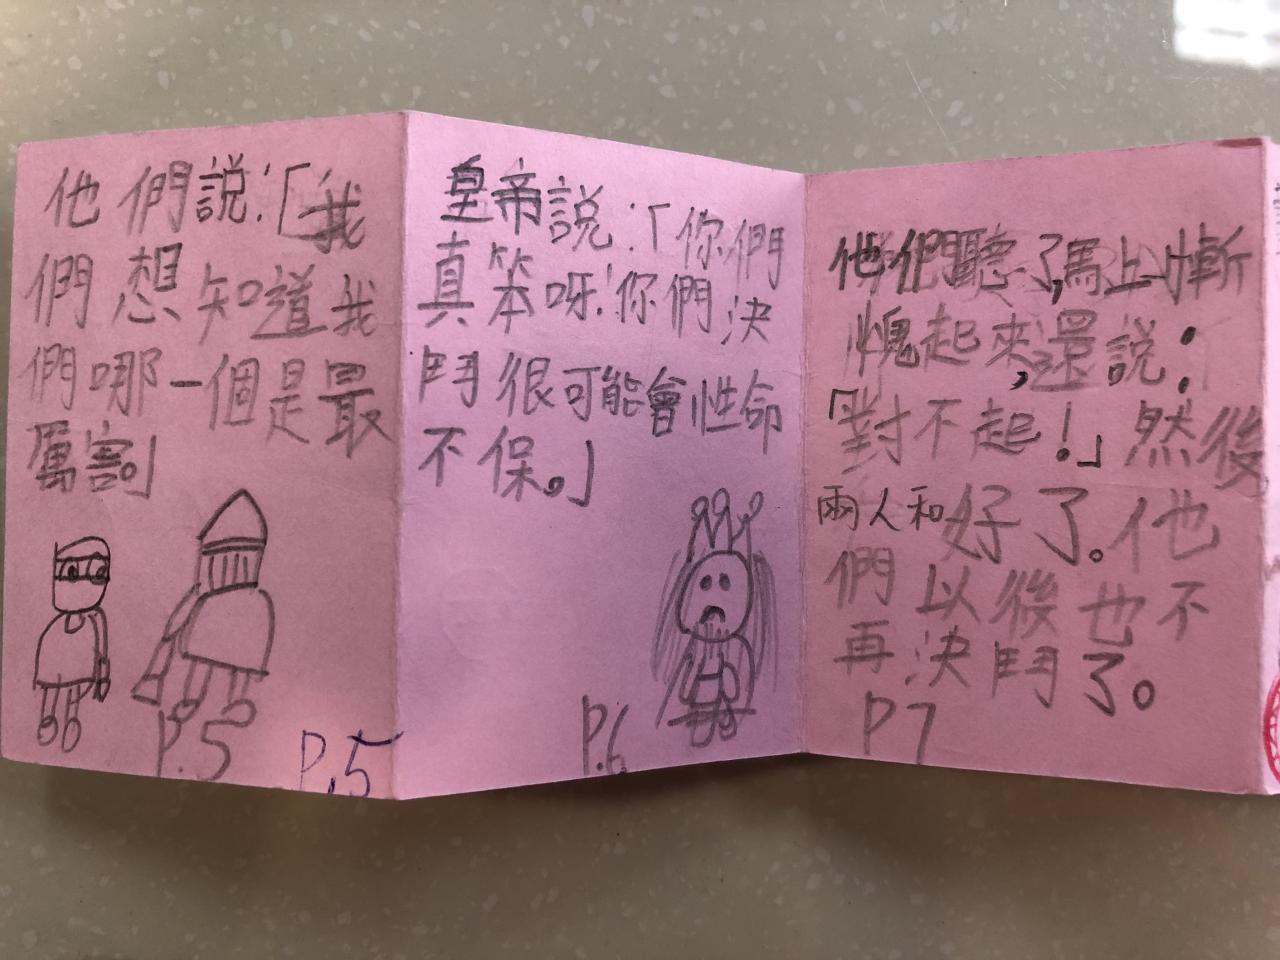 他們說:「我
們想知道我
們哪一個是最
厲害。」
P.5
P.5
皇帝說:「你們
真笨呀!你們決
鬥很可能會性命
不保。」
P.6
他們聽了,馬上慚
愧起來,還說:
「對不起!」然後
兩人和好了。他
們以後也不
再決鬥了。
P7